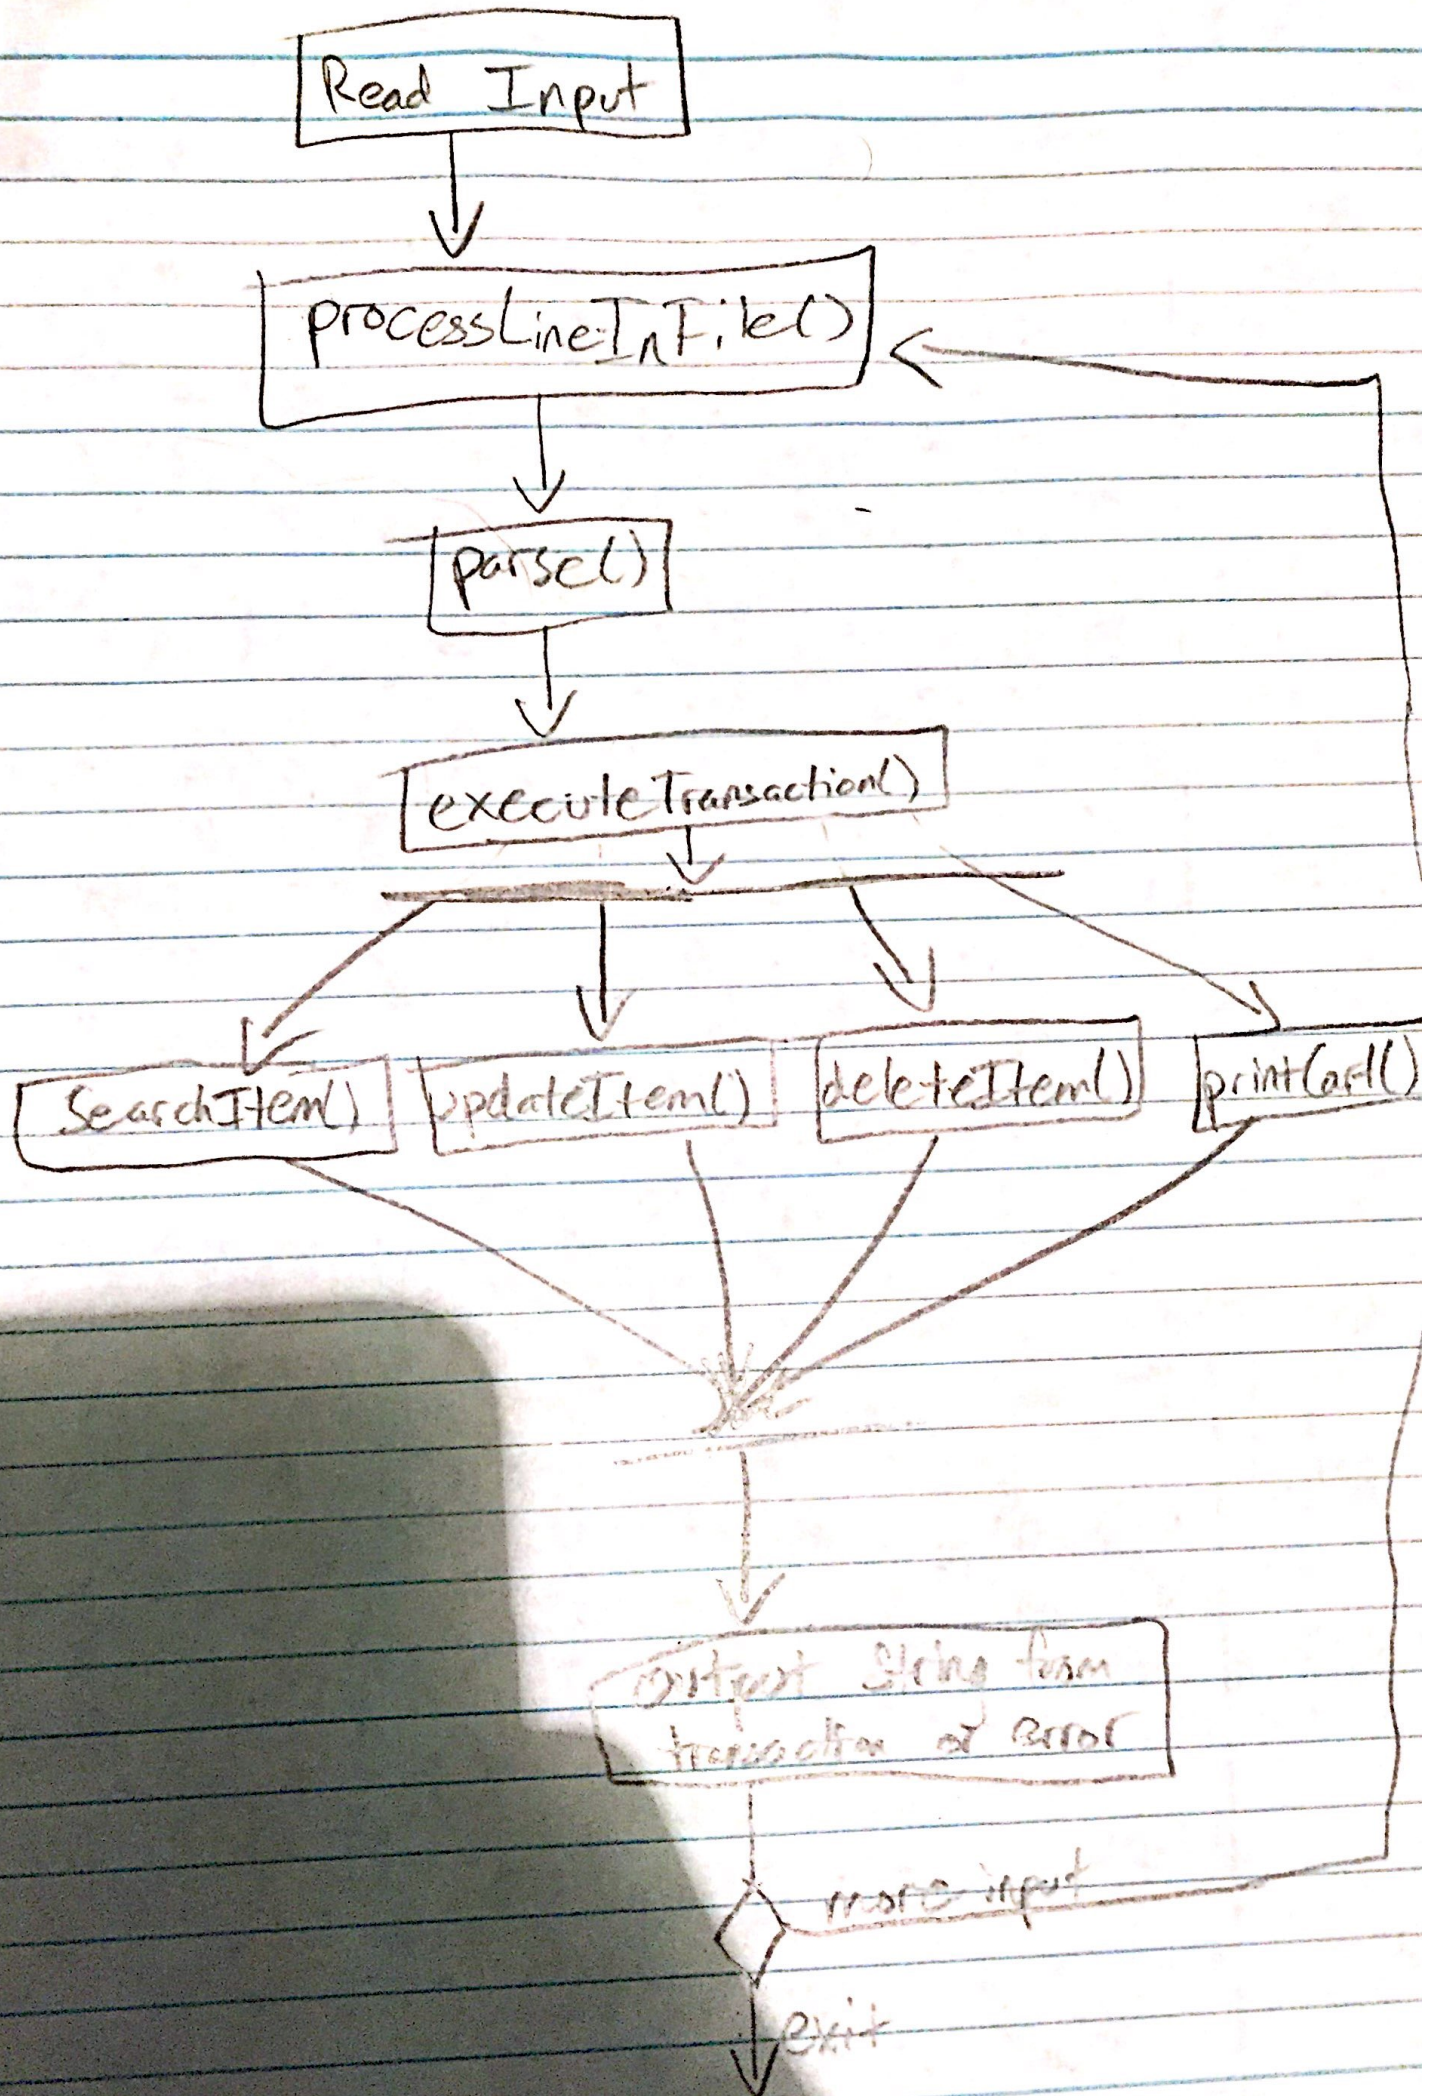 Read Input
processLineInFile()
parse()
executeTransaction()
SearchItem()
updateItem()
deleteItem()
printCart()
output String from
transaction or error
more input
exit